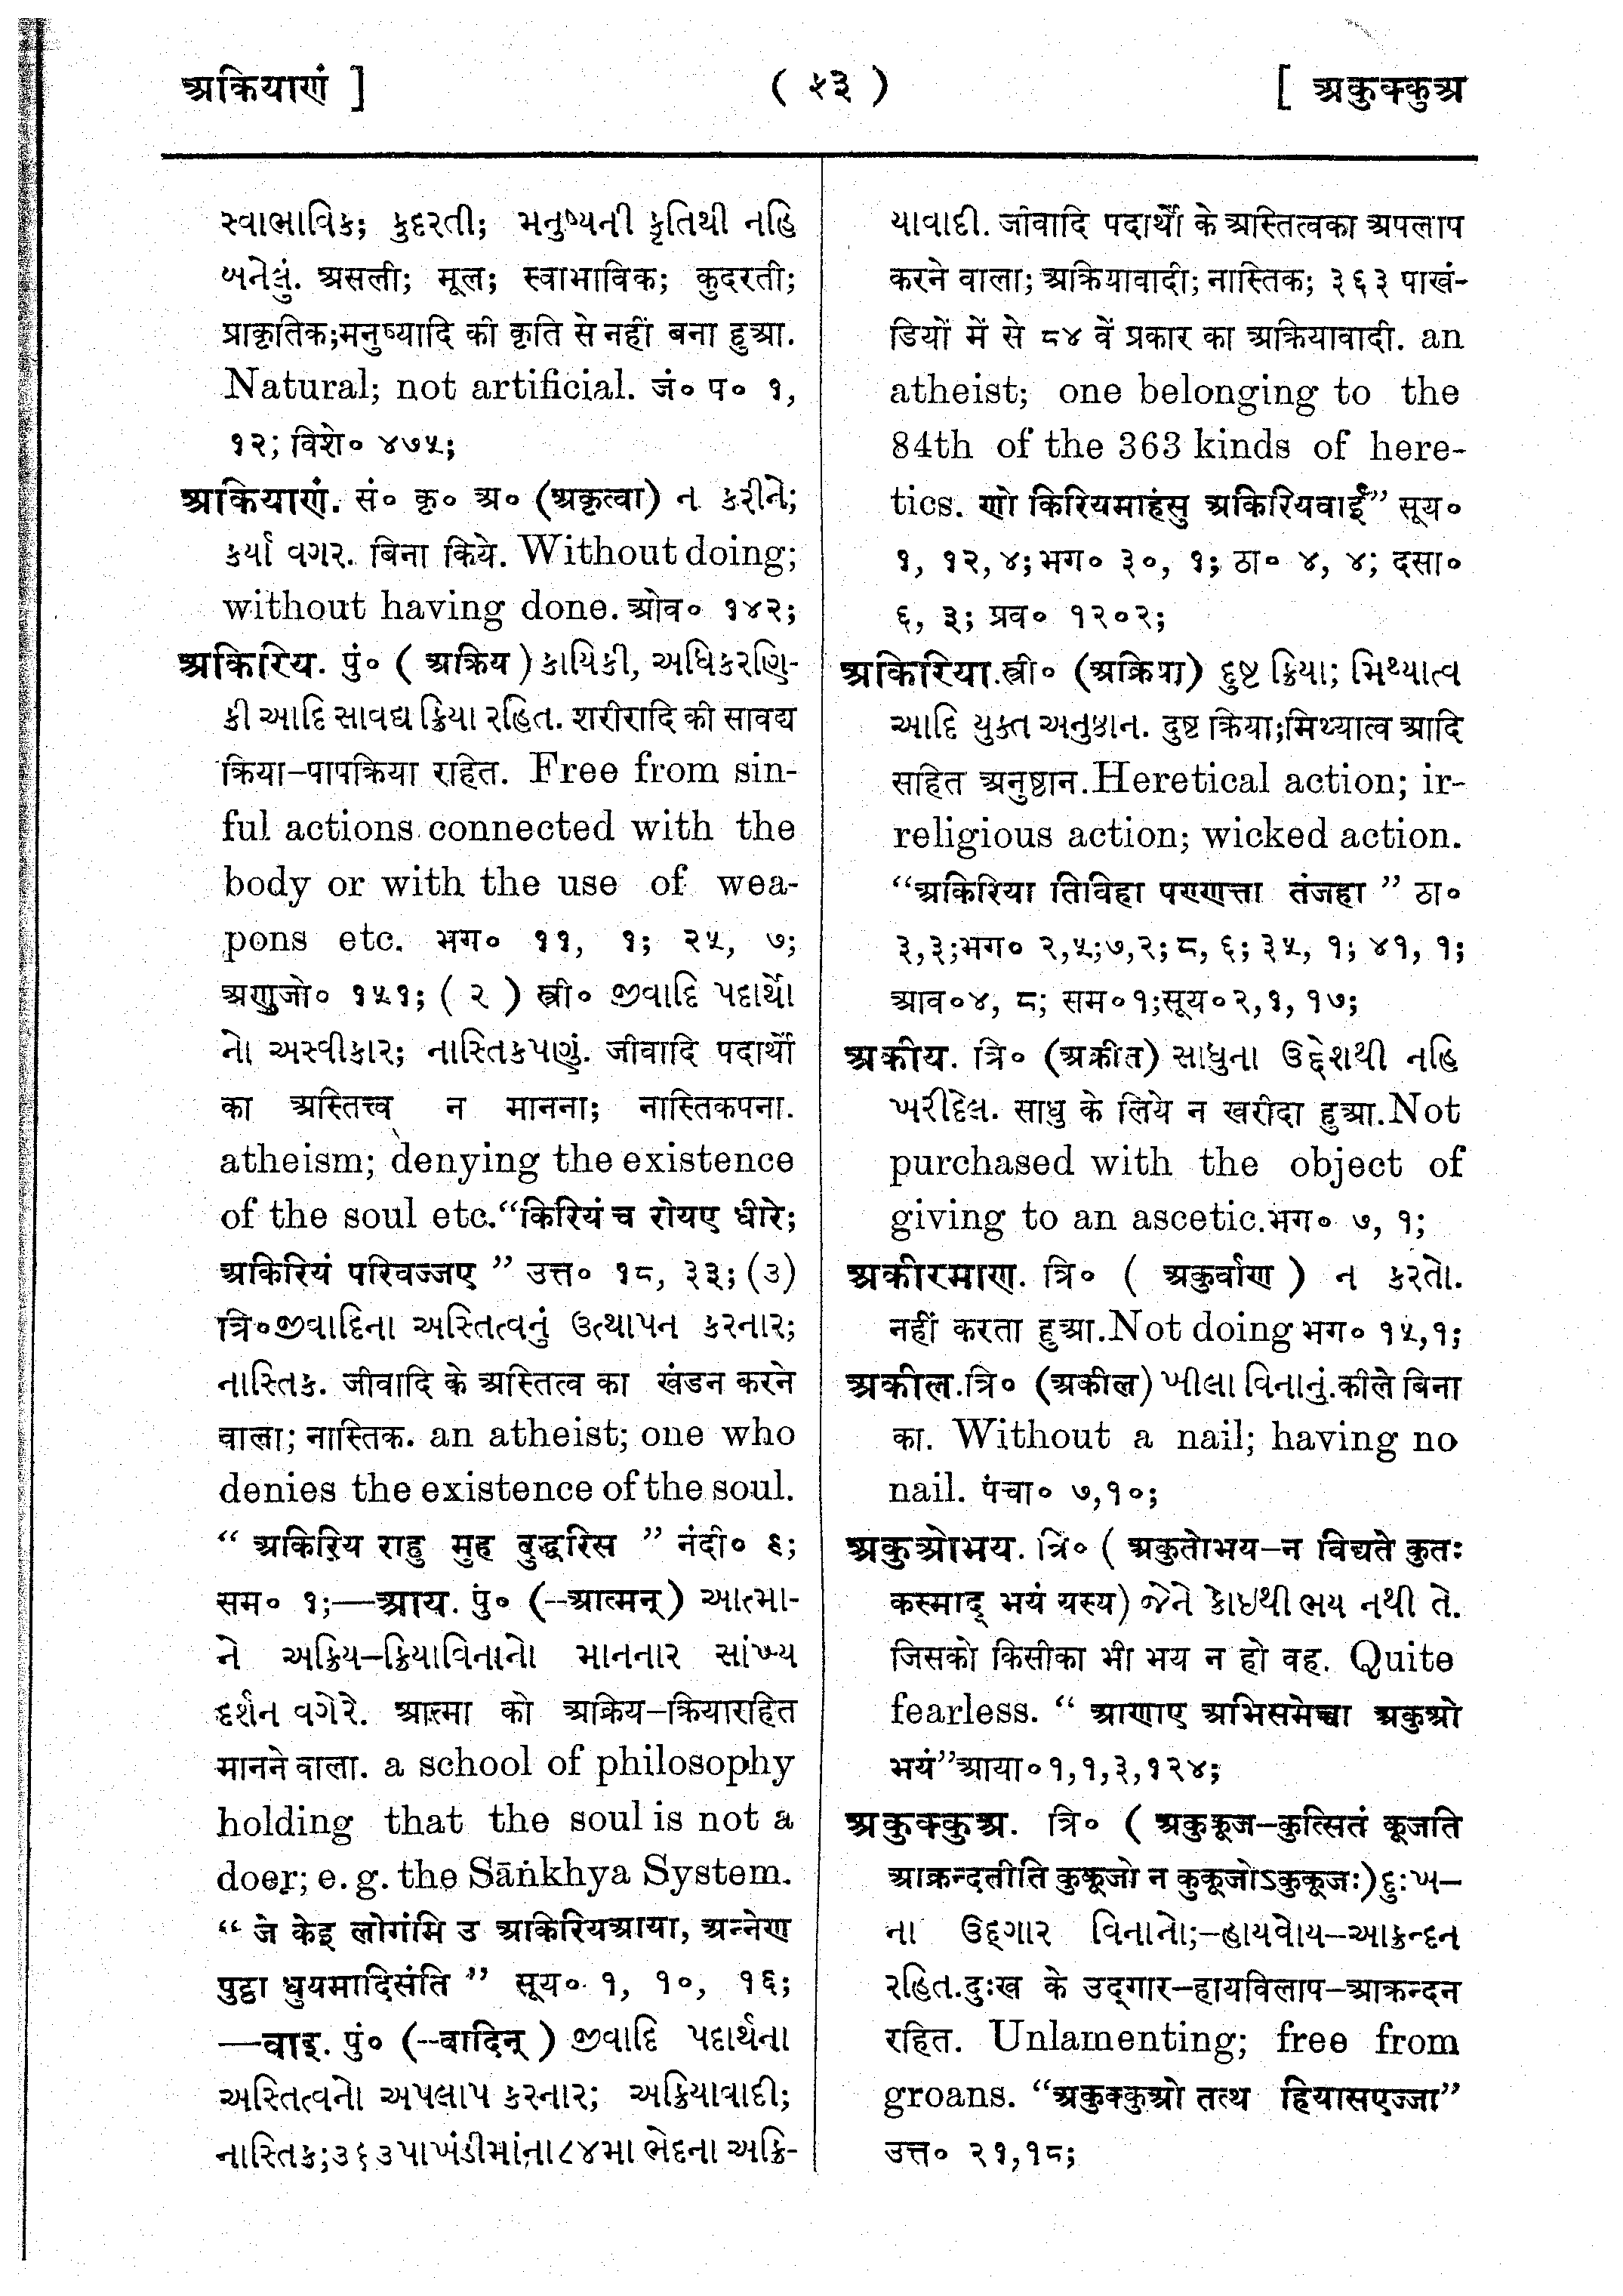 अकियाणं ]
( ५३ )
[ अकुक्कुअ
સ્વાભાવિક; કુદરતી; મનુષ્યની કૃતિથી નહિ
બનેલું. असली; मूल; स्वाभाविक; कुदरती;
प्राकृतिक;मनुष्यादि की कृति से नहीं बना हुआ.
Natural; not artificial. जं० प० १,
१२; विशे० ४७५;
अकियाणं. सं० कृ० अ० (अकृत्वा) ન કરીને;
કર્યા વગર. बिना किये. Without doing;
without having done. ओव० १४२;
अकिरिय. पुं० ( अक्रिय ) કાયિકી, અધિકરણિ-
કી આદિ સાવદ્ય ક્રિયા રહિત. शरीरादि की सावद्य
क्रिया-पापक्रिया राहित. Free from sin-
ful actions connected with the
body or with the use of wea-
pons etc. भग० ११, १; २५, ७;
अणुजो० १५१; ( २ ) स्त्री० જીવાદિ પદાર્થો
નો અસ્વીકાર; નાસ્તિકપણું. जीवादि पदार्थों
का अस्तित्त्व न मानना; नास्तिकपना.
atheism; denying the existence
of the soul etc. “किरियं च रोयए धीरे;
अकिरियं परिवज्जए ” उत्त० १८, ३३; (૩)
त्रि० જીવાદિના અસ્તિત્વનું ઉત્થાપન કરનાર;
નાસ્તિક. जीवादि के अस्तित्व का खंडन करने
वाला; नास्तिक. an atheist; one who
denies the existence of the soul.
“ अकिरिय राहु मुह वुद्धरिस ” नंदी० ६;
सम० १;—आय. पुं० (--आत्मन्) આત્મા-
ને અક્રિય-ક્રિયાવિનાનો માનનાર સાંખ્ય
દર્શન વગેરે. आत्मा को अक्रिय-क्रियारहित
मानने वाला. a school of philosophy
holding that the soul is not a
doer; e. g. the Sāṅkhya System.
“ जे केइ लोगंमि उ अकिरियआया, अन्नेण
पुट्ठा धुयमादिसंति ” सूय० १, १०, १६;
—वाइ. पुं० (--वादिन् ) જીવાદિ પદાર્થના
અસ્તિત્વનો અપલાપ કરનાર; અક્રિયાવાદી;
નાસ્તિક;૩૬૩ પાખંડીમાંના ૮૪મા ભેદના અક્રિ-
યાવાદી. जीवादि पदार्थों के अस्तित्वका अपलाप
करने वाला; अक्रियावादी; नास्तिक; ३६३ पाखं-
डियों में से ८४ वें प्रकार का अक्रियावादी. an
atheist; one belonging to the
84th of the 363 kinds of here-
tics. णो किरियमाहंसु अकिरियवाई” सूय०
१, १२, ४; भग० ३०, १; ठा० ४, ४; दसा०
६, ३; प्रव० १२०२;
अकिरिया. स्त्री० (अक्रिया) દુષ્ટ ક્રિયા; મિથ્યાત્વ
આદિ યુક્ત અનુષ્ઠાન. दुष्ट क्रिया;मिथ्यात्व आदि
साहित अनुष्ठान. Heretical action; ir-
religious action; wicked action.
“अकिरिया तिविहा पण्णत्ता तंजहा ” ठा०
३,३;भग० २,५;७,२; ८, ६; ३५, १; ४१, १;
आव०४, ८; सम०१;सूय०२,१, १७;
अकीय. त्रि० (अक्रीत) સાધુના ઉદ્દેશથી નહિ
ખરીદેલ. साधु के लिये न खरीदा हुआ. Not
purchased with the object of
giving to an ascetic. भग० ७, १;
अकीरमाण. त्रि० ( अकुर्वाण ) ન કરતો.
नहीं करता हुआ. Not doing भग० १५,१;
अकील. त्रि० (अकील) ખીલા વિનાનું. कीले बिना
का. Without a nail; having no
nail. पंचा० ७,१०;
अकुओभय. त्रि० ( अकुतोभय-न विद्यते कुतः
कस्माद् भयं यस्य) જેને કોઇથી ભય નથી તે.
जिसको किसीका भी भय न हो वह. Quite
fearless. “ आणाए अभिसमेच्चा अकुओ
भयं” आया० १,१,३,१२४;
अकुक्कुअ. त्रि० ( अकुकूज-कुत्सितं कूजति
आक्रन्दतीति कुकूजो न कुकूजोऽकुकूजः) દુઃખ-
ના ઉદ્ગાર વિનાનો;-હાયવોય-આક્રન્દન
રહિત. दुःख के उद्गार-हायविलाप-आक्रन्दन
रहित. Unlamenting; free from
groans. “अकुक्कुओ तत्थ हियासएज्जा”
उत्त० २१,१८;